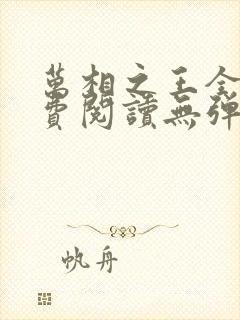 萬相之王全
費閱讀無彈
帆舟